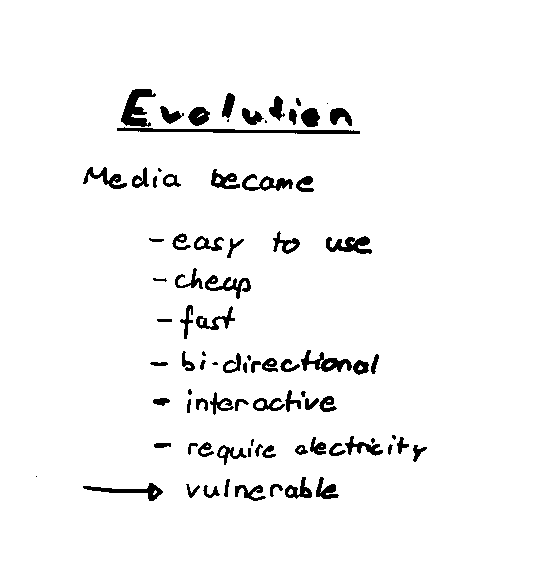 Evolution
Media became
- easy to use
- cheap
- fast
- bi-directional
- interactive
- require electricity
→ vulnerable